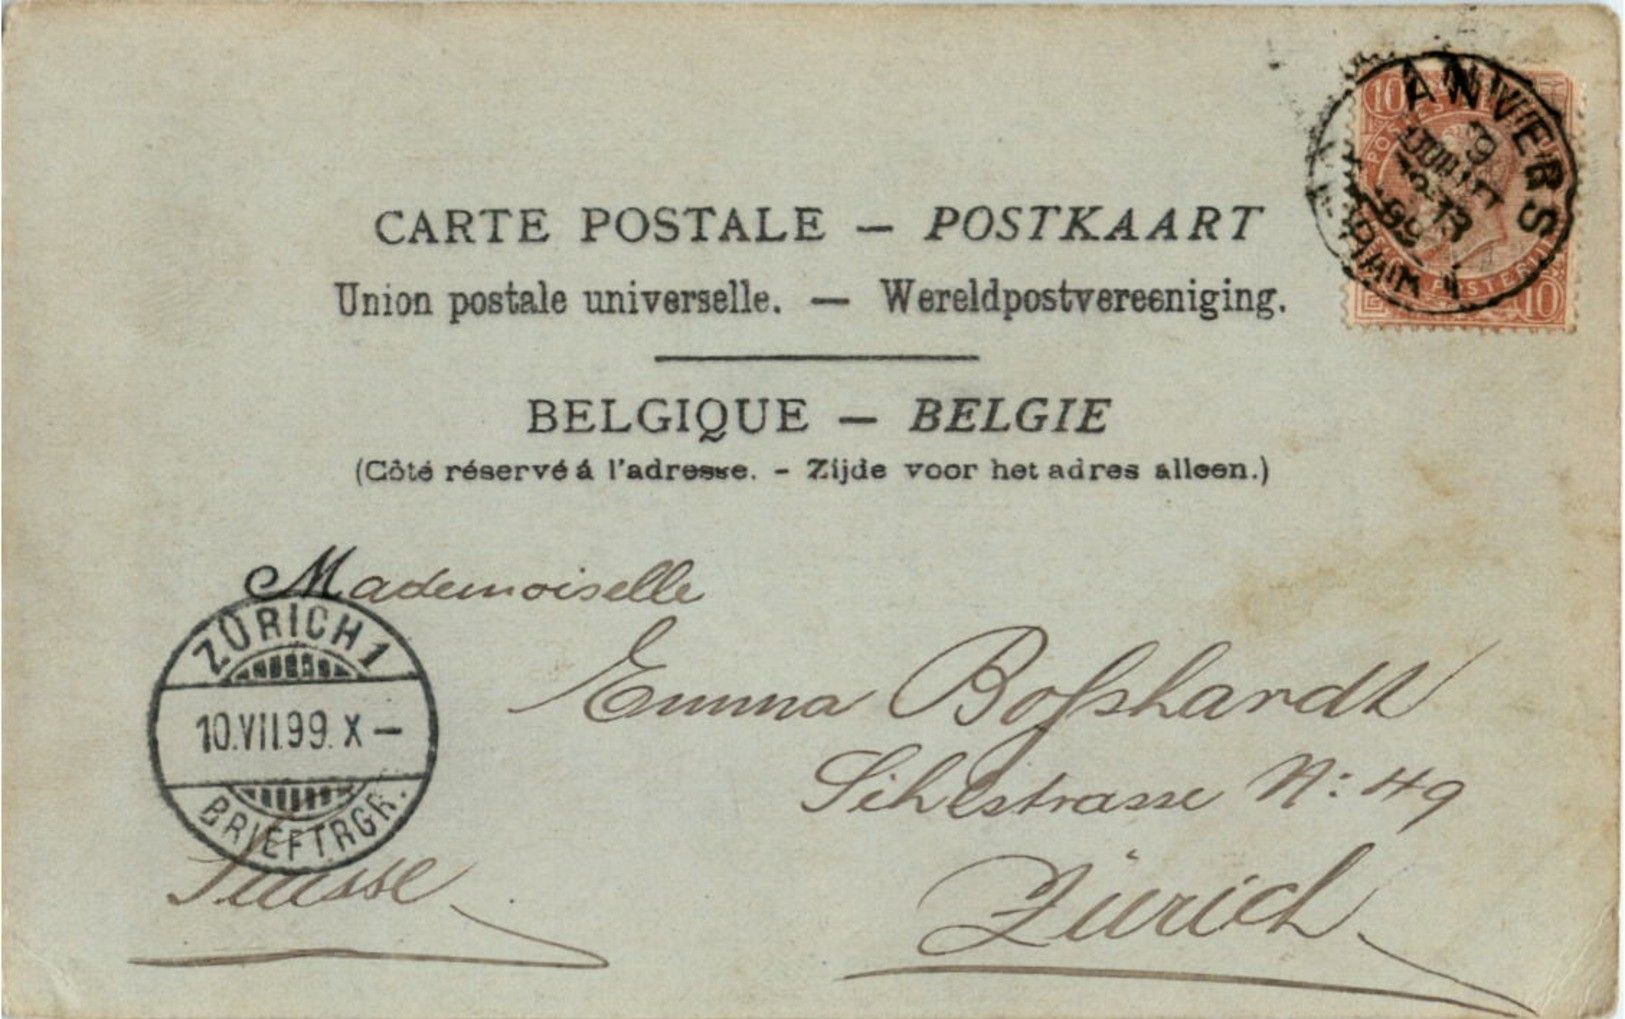 CARTE POSTALE — POSTKAART
Union postale universelle. — Wereldpostvereeniging.
BELGIQUE — BELGIE
(Côté réservé á l'adresse. - Zijde voor het adres alleen.)
10 10
ANVERS
9
JUILLET
99
Mademoiselle
Emma Boſshardt
Sihlstrasse N: 49
Zürich
Suisse
ZÜRICH 1
10.VII.99. X –
BRIEFTRGR.